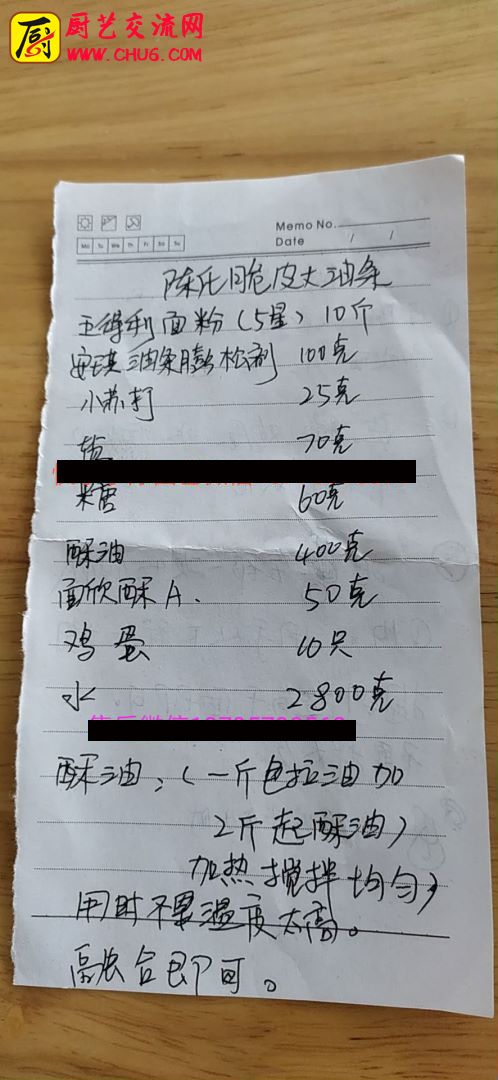 厨
厨艺交流网
WWW.CHU6.COM
Memo No.
Mo Tu We Th Fr Sa Su
Date / /
陈氏脆皮大油条
王得利面粉(5星) 10斤
安琪油条膨松剂 100克
小苏打 25克
盐 70克
糖 60克
酥油 400克
面欣酥A. 50克
鸡蛋 10只
水 2800克
酥油,(一斤色拉油加
2斤起酥油)
加热搅拌均匀,
用时不要温度太高。
融合即可。